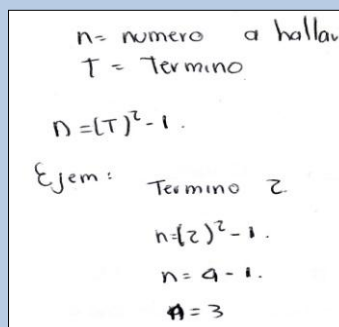 n= numero a hallar
T = Termino
n =(T)² - 1.
Ejem:
Termino 2
n=(2)² - 1.
n= 4 - 1.
n = 3